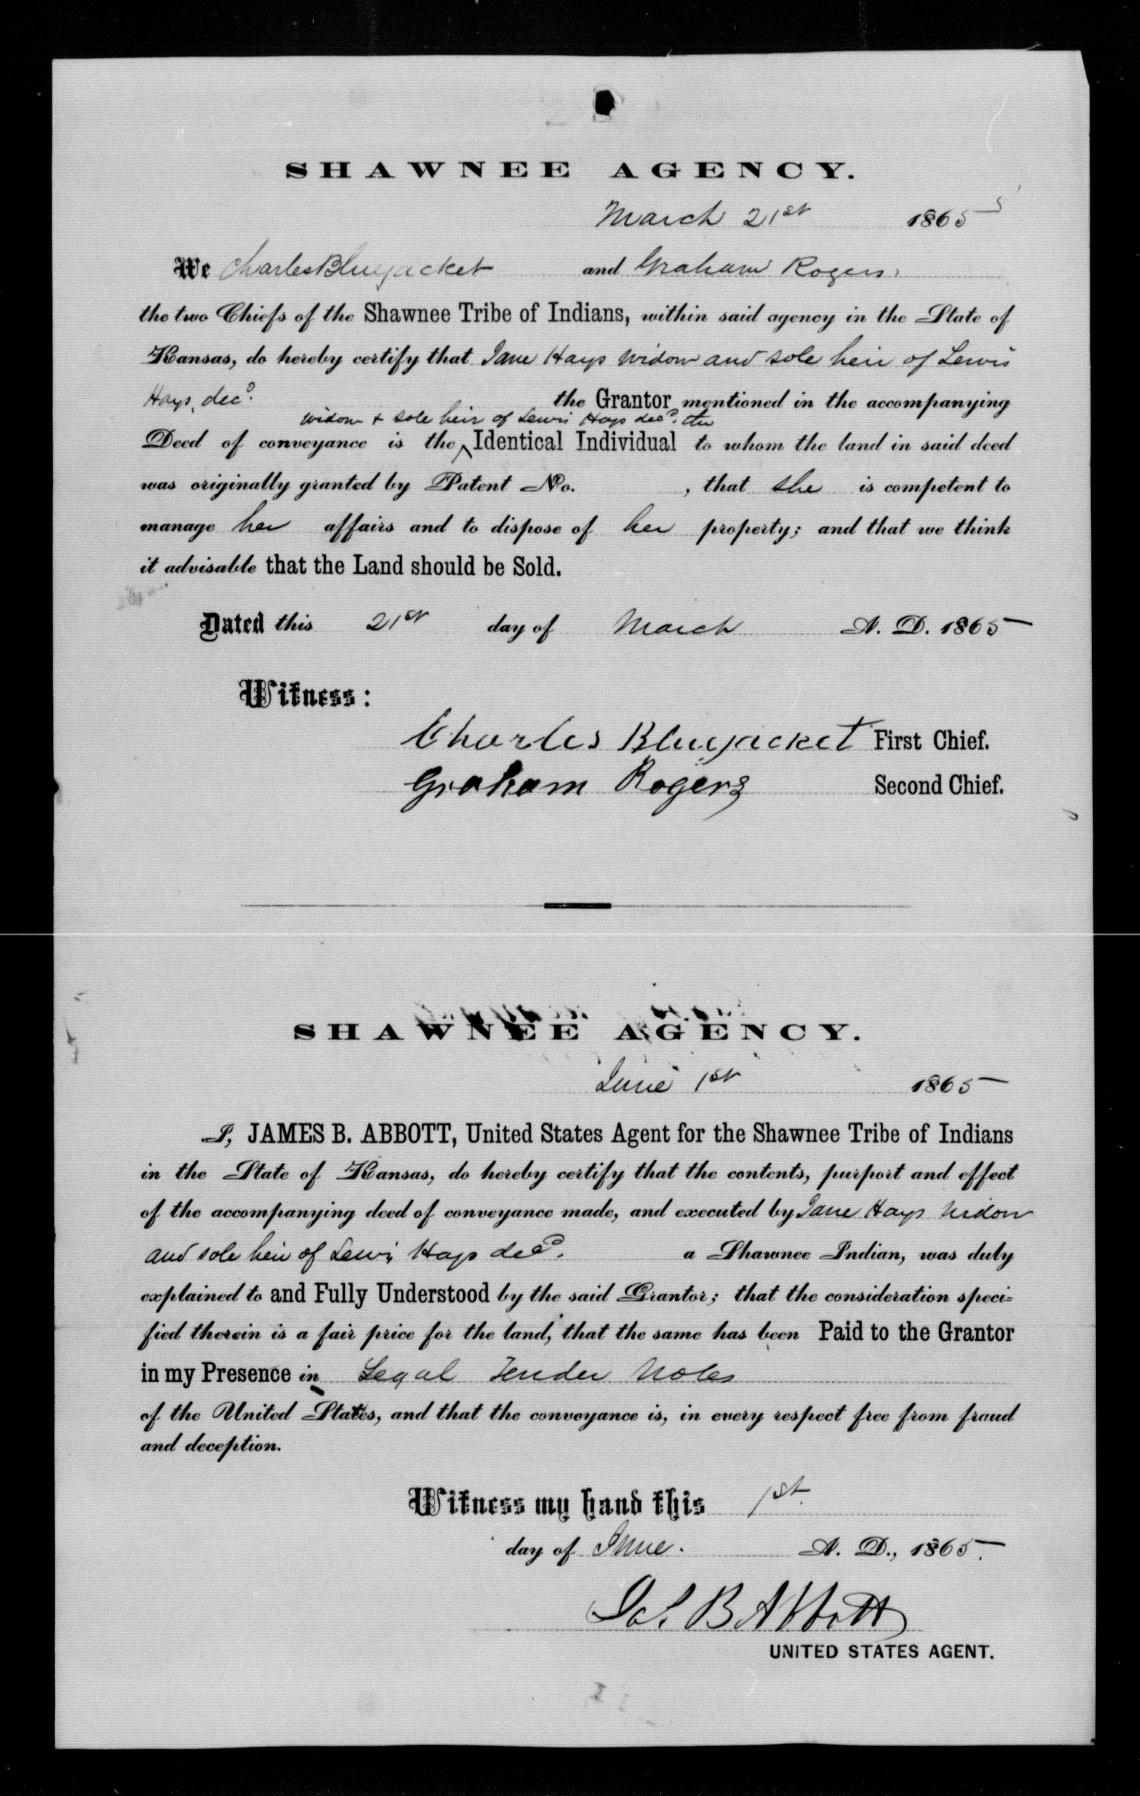 SHAWNEE AGENCY.
March 21st 1865
We Charles Bluejacket and Graham Rogers,
the two Chiefs of the Shawnee Tribe of Indians, within said agency in the State of
Kansas, do hereby certify that Jane Hays widow and sole heir of Lewis
Hays, decd. the Grantor mentioned in the accompanying
widow & sole heir of Lewis Hays decd. the
Deed of conveyance is the Identical Individual to whom the land in said deed
was originally granted by Patent No. , that she is competent to
manage her affairs and to dispose of her property; and that we think
it advisable that the Land should be Sold.
Dated this 21st day of March A. D. 1865
Witness:
Charles Bluejacket First Chief.
Graham Rogers Second Chief.
SHAWNEE AGENCY.
June 1st 1865
I, JAMES B. ABBOTT, United States Agent for the Shawnee Tribe of Indians
in the State of Kansas, do hereby certify that the contents, purport and effect
of the accompanying deed of conveyance made, and executed by Jane Hays widow
and sole heir of Lewis Hays decd. a Shawnee Indian, was duly
explained to and Fully Understood by the said Grantor; that the consideration speci=
fied therein is a fair price for the land, that the same has been Paid to the Grantor
in my Presence in Legal Tender Notes
of the United States, and that the conveyance is, in every respect free from fraud
and deception.
Witness my hand this 1st
day of June. A. D., 1865.
Jas. B Abbott
UNITED STATES AGENT.